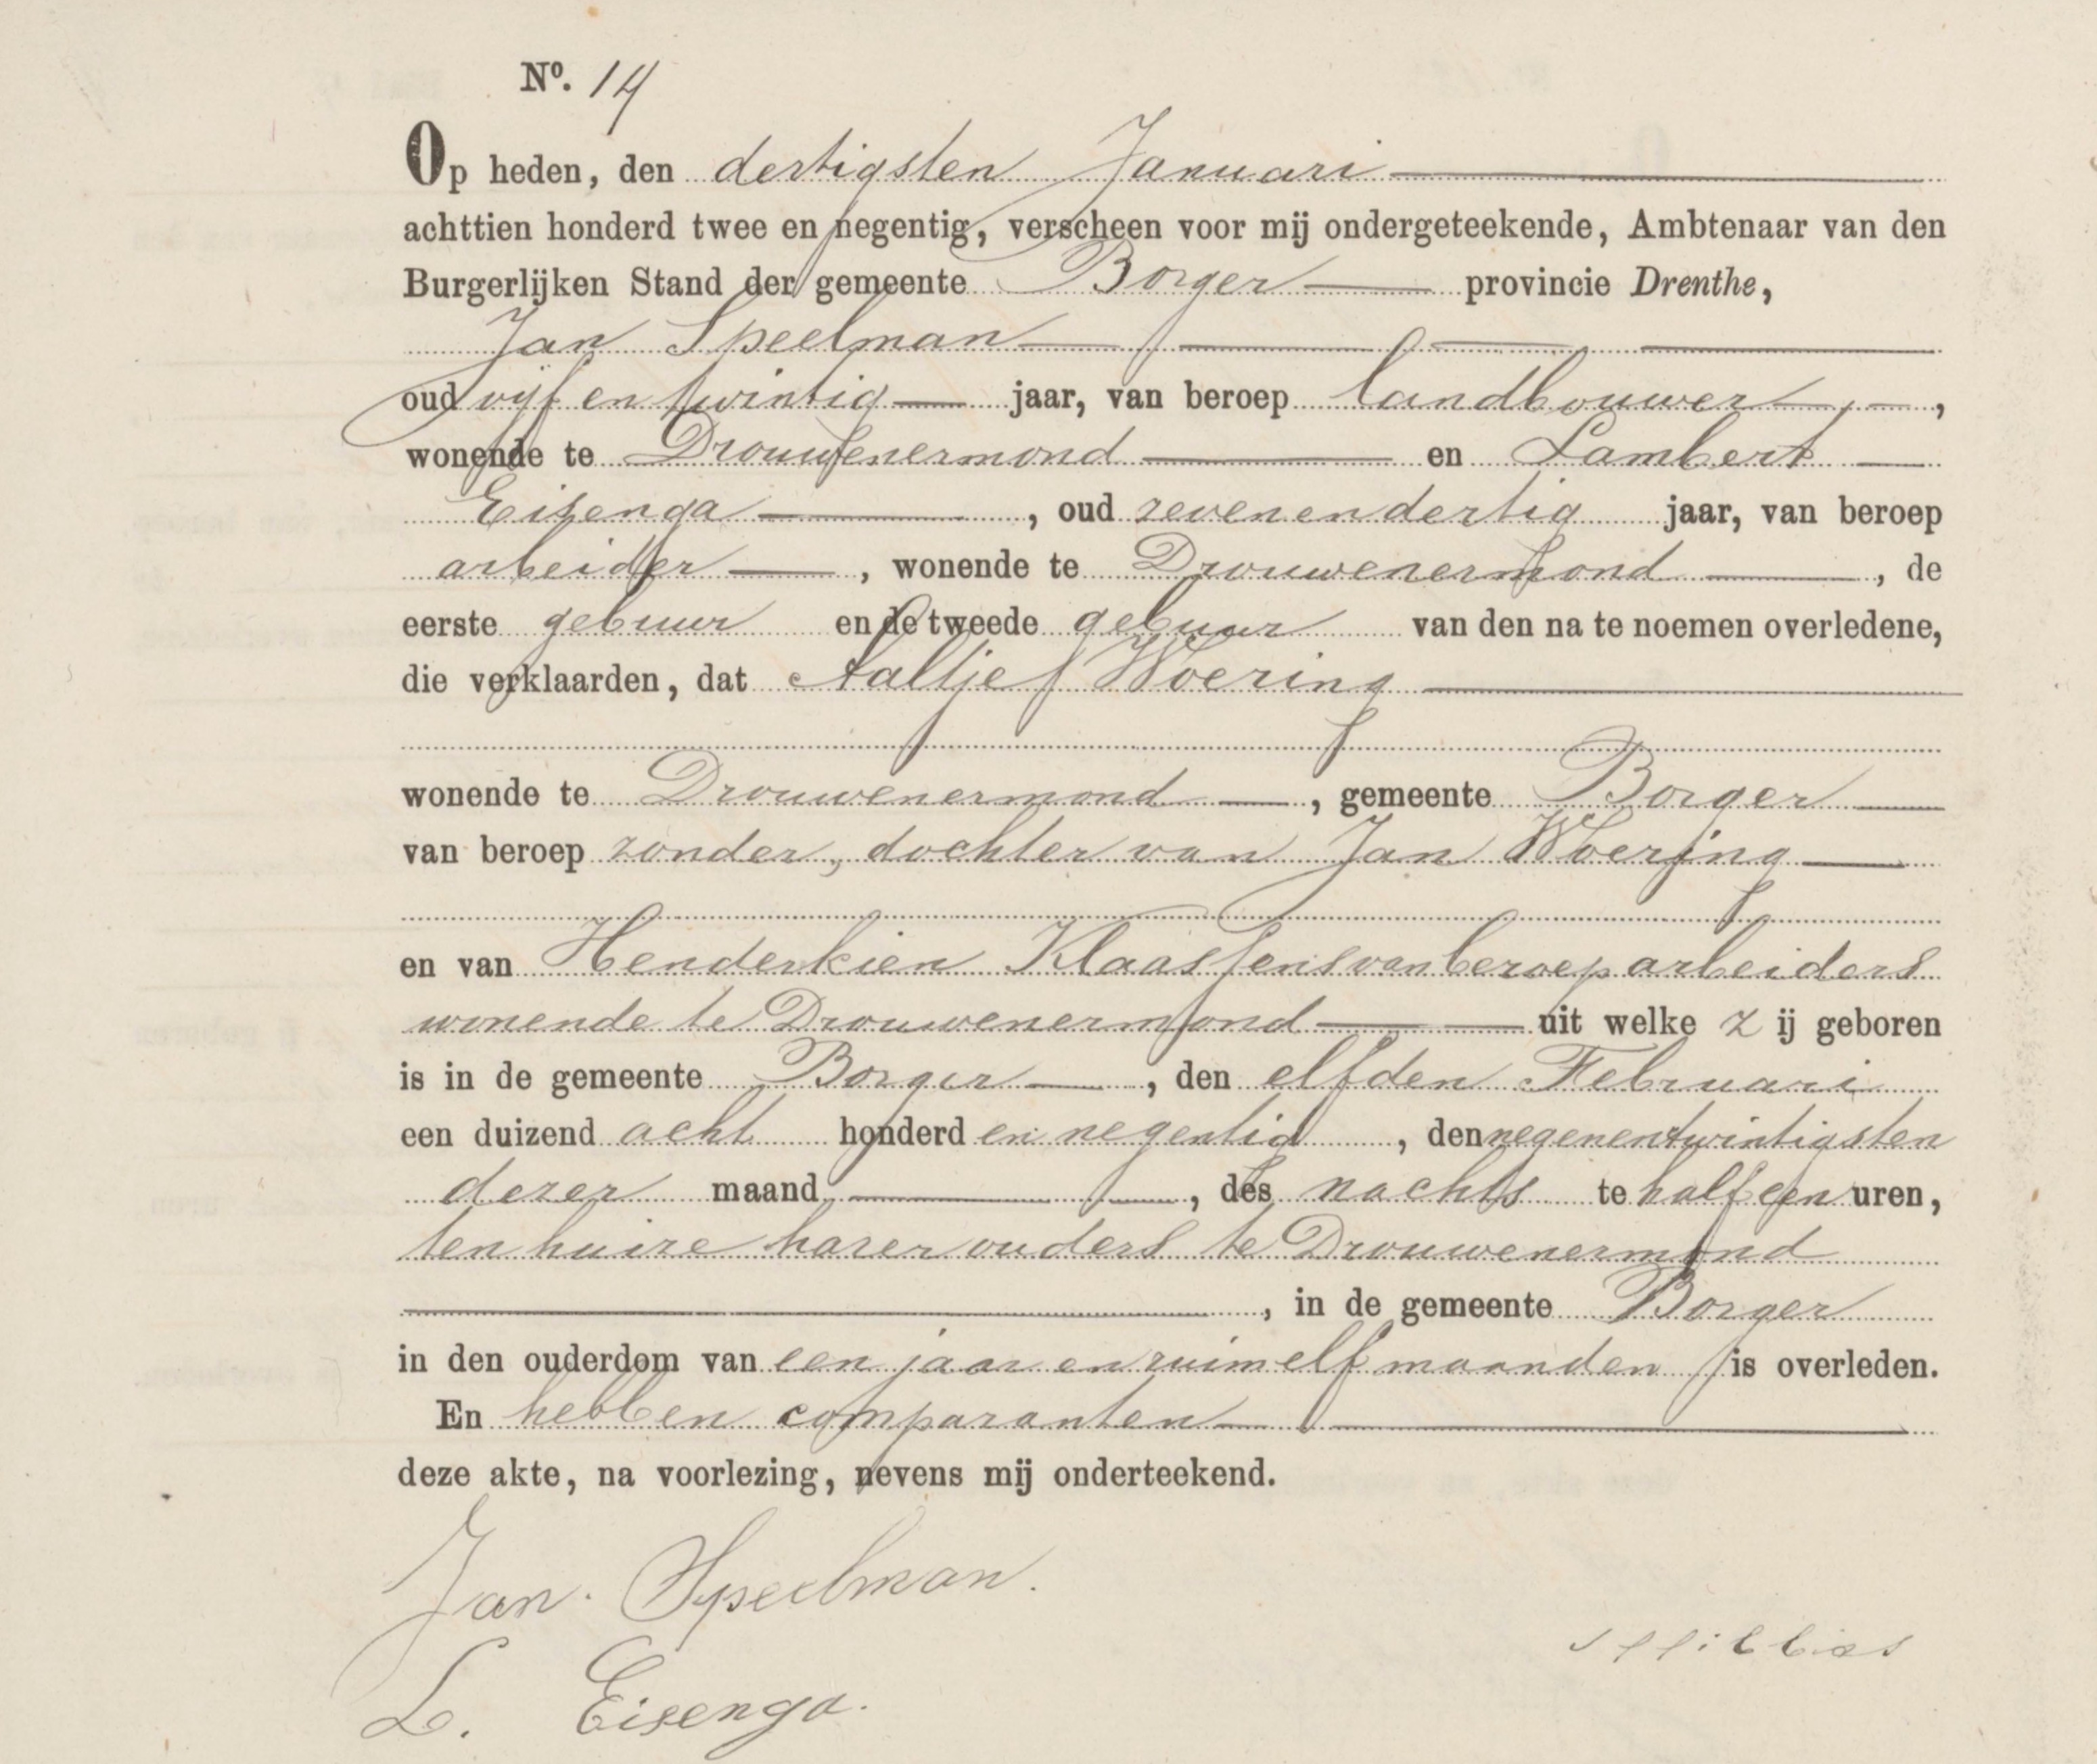 Nº. 14
Op heden, den dertigsten Januari
achttien honderd twee en negentig, verscheen voor mij ondergeteekende, Ambtenaar van den
Burgerlijken Stand der gemeente Borger provincie Drenthe,
Jan Speelman
oud vijf en twintig jaar, van beroep landbouwer,
wonende te Drouwenermond en Lambert
Eisenga, oud zevenendertig jaar, van beroep
arbeider, wonende te Drouwenermond, de
eerste gebuur en de tweede gebuur van den na te noemen overledene,
die verklaarden, dat Aaltje Woering
wonende te Drouwenermond, gemeente Borger
van beroep zonder, dochter van Jan Woering
en van Henderkien Klaassens van beroep arbeiders
wonende te Drouwenermond uit welke zij geboren
is in de gemeente Borger, den elfden Februari
een duizend acht honderd en negentig, den negenentwintigsten
dezer maand, des nachts te half een uren,
ten huize harer ouders te Drouwenermond
, in de gemeente Borger
in den ouderdom van een jaar en ruim elf maanden is overleden.
En hebben comparanten
deze akte, na voorlezing, nevens mij onderteekend.
Jan. Speelman.
L. Eisenga.